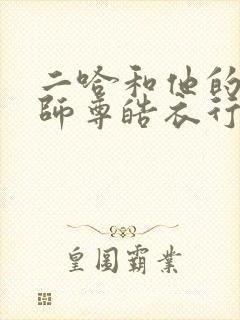 二哈和他的
師尊皓衣行
皇圖霸業